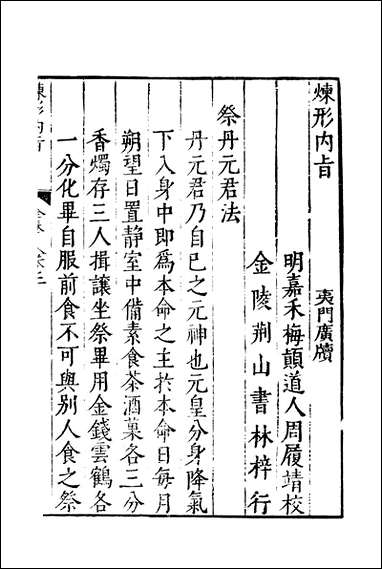 煉形内旨
夷門廣牘
明嘉禾梅顛道人周履靖校
金陵荆山書林梓行
祭丹元君法
丹元君乃自已之元神也元皇分身降氣
下入身中即爲本命之主扵本命日每月
朔望日置静室中備素食茶酒菓各三分
香燭存三人揖讓坐祭畢用金錢雲鶴各
一分化畢自服前食不可與別人食之祭
煉形内旨